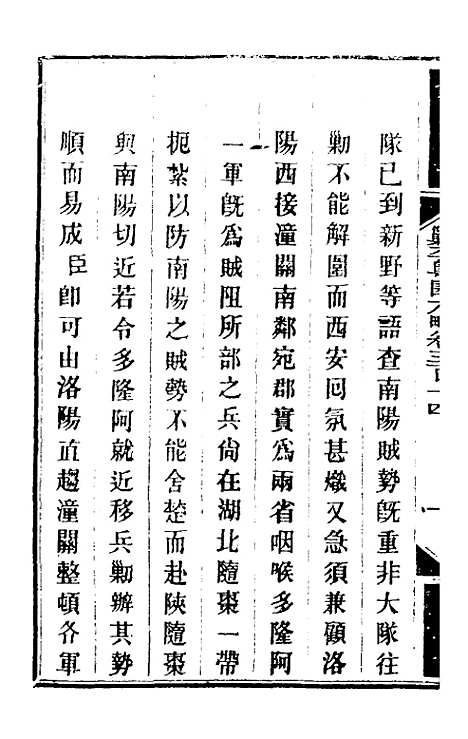 隊已到新野等語查南陽賊勢既重非大隊往
勦不能解圍而西安回氛甚熾又急須兼顧洛
陽西接潼關南鄰宛郡實爲兩省咽喉多隆阿
一軍既爲賊阻所部之兵尙在湖北隨棗一帶
扼紮以防南陽之賊勢不能舍楚而赴陝隨棗
與南陽切近若令多隆阿就近移兵勦辦其勢
順而易成臣卽可由洛陽直趨潼關整頓各軍